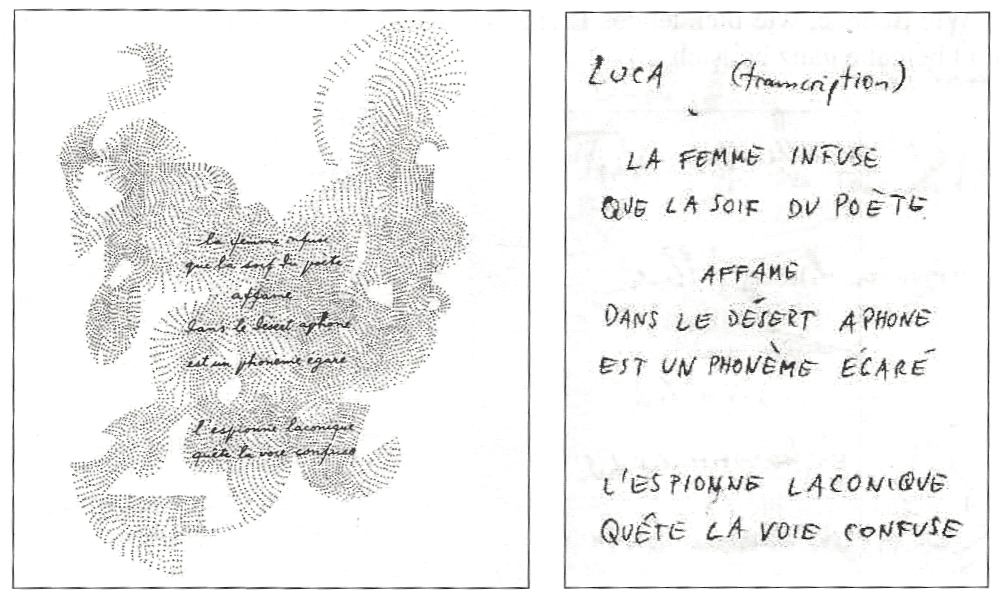 la femme infuse
que la soif du poète
affame
dans le désert aphone
est un phonème egaré
l'espionne laconique
quête la voie confuse
LUCA (transcription)
LA FEMME INFUSE
QUE LA SOIF DU POÈTE
AFFAME
DANS LE DÉSERT APHONE
EST UN PHONÈME EGARÉ
L'ESPIONNE LACONIQUE
QUÊTE LA VOIE CONFUSE